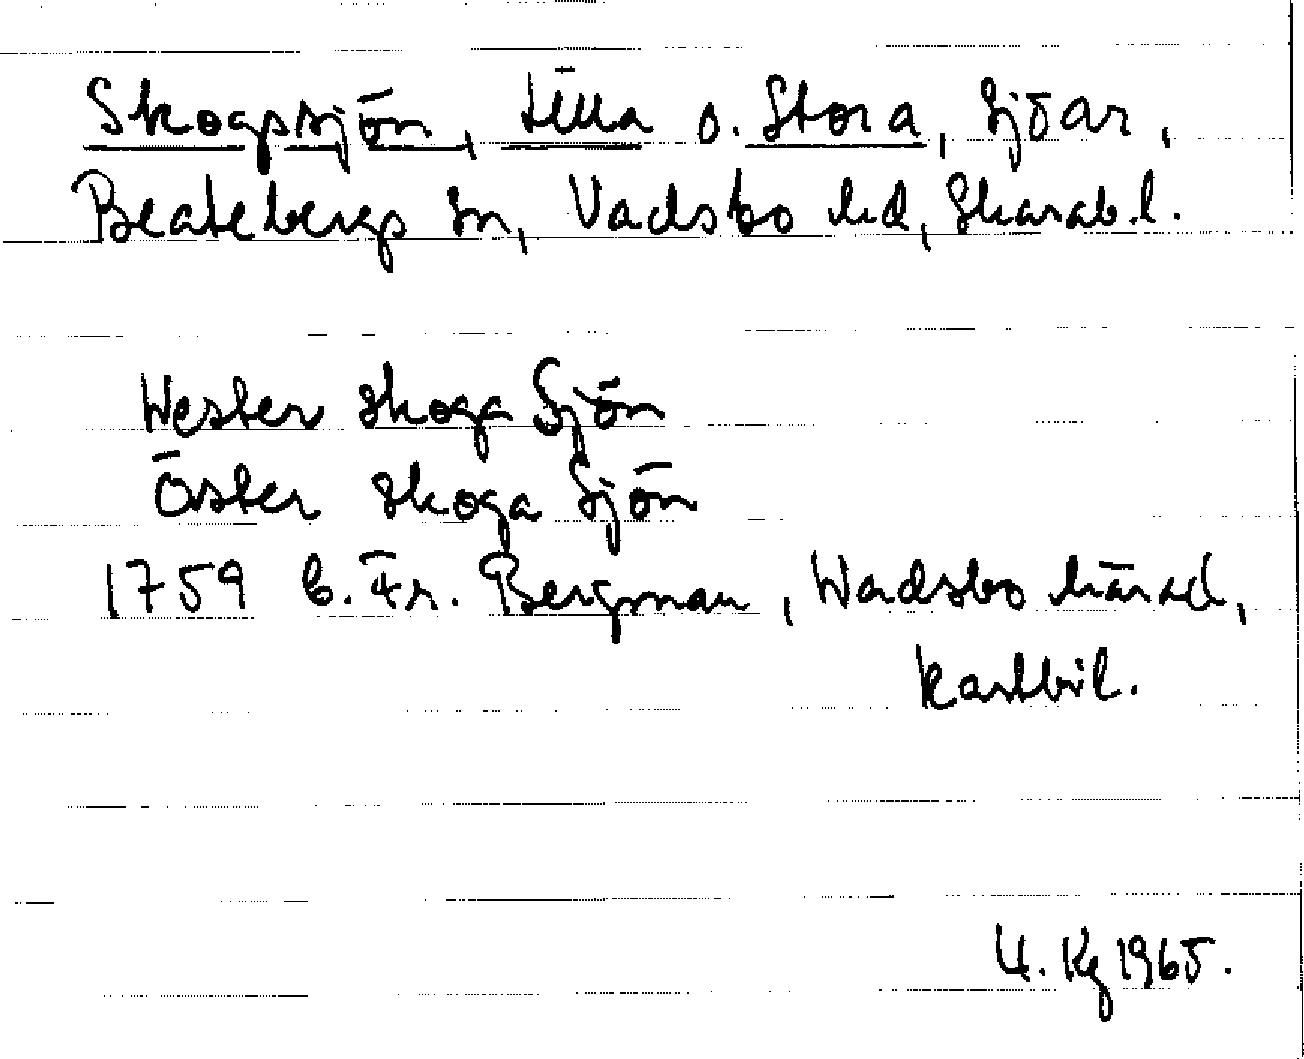 Skogssjön, Lilla o. Stora, sjöar,
Beatebergs sn, Vadsbo hd, Skarab.l.
Wester skoga Sjön
Öster skoga Sjön
1759 b. Fr. Bergman, Wadsbo härad,
kartbil.
1965.